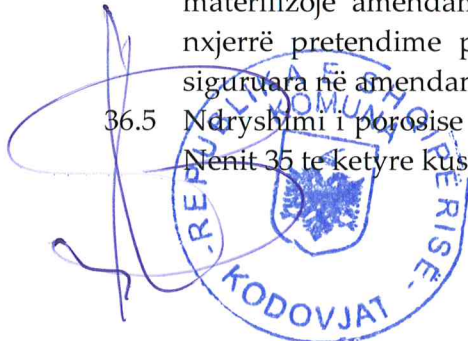 materilizojë amendam
nxjerrë pretendime p
siguruara në amendan
36.5 Ndryshimi i porosise
Nenit 35 te ketyre kus
REPUBLIKA E SHQIPERISË
KOMUNA
KODOVJAT